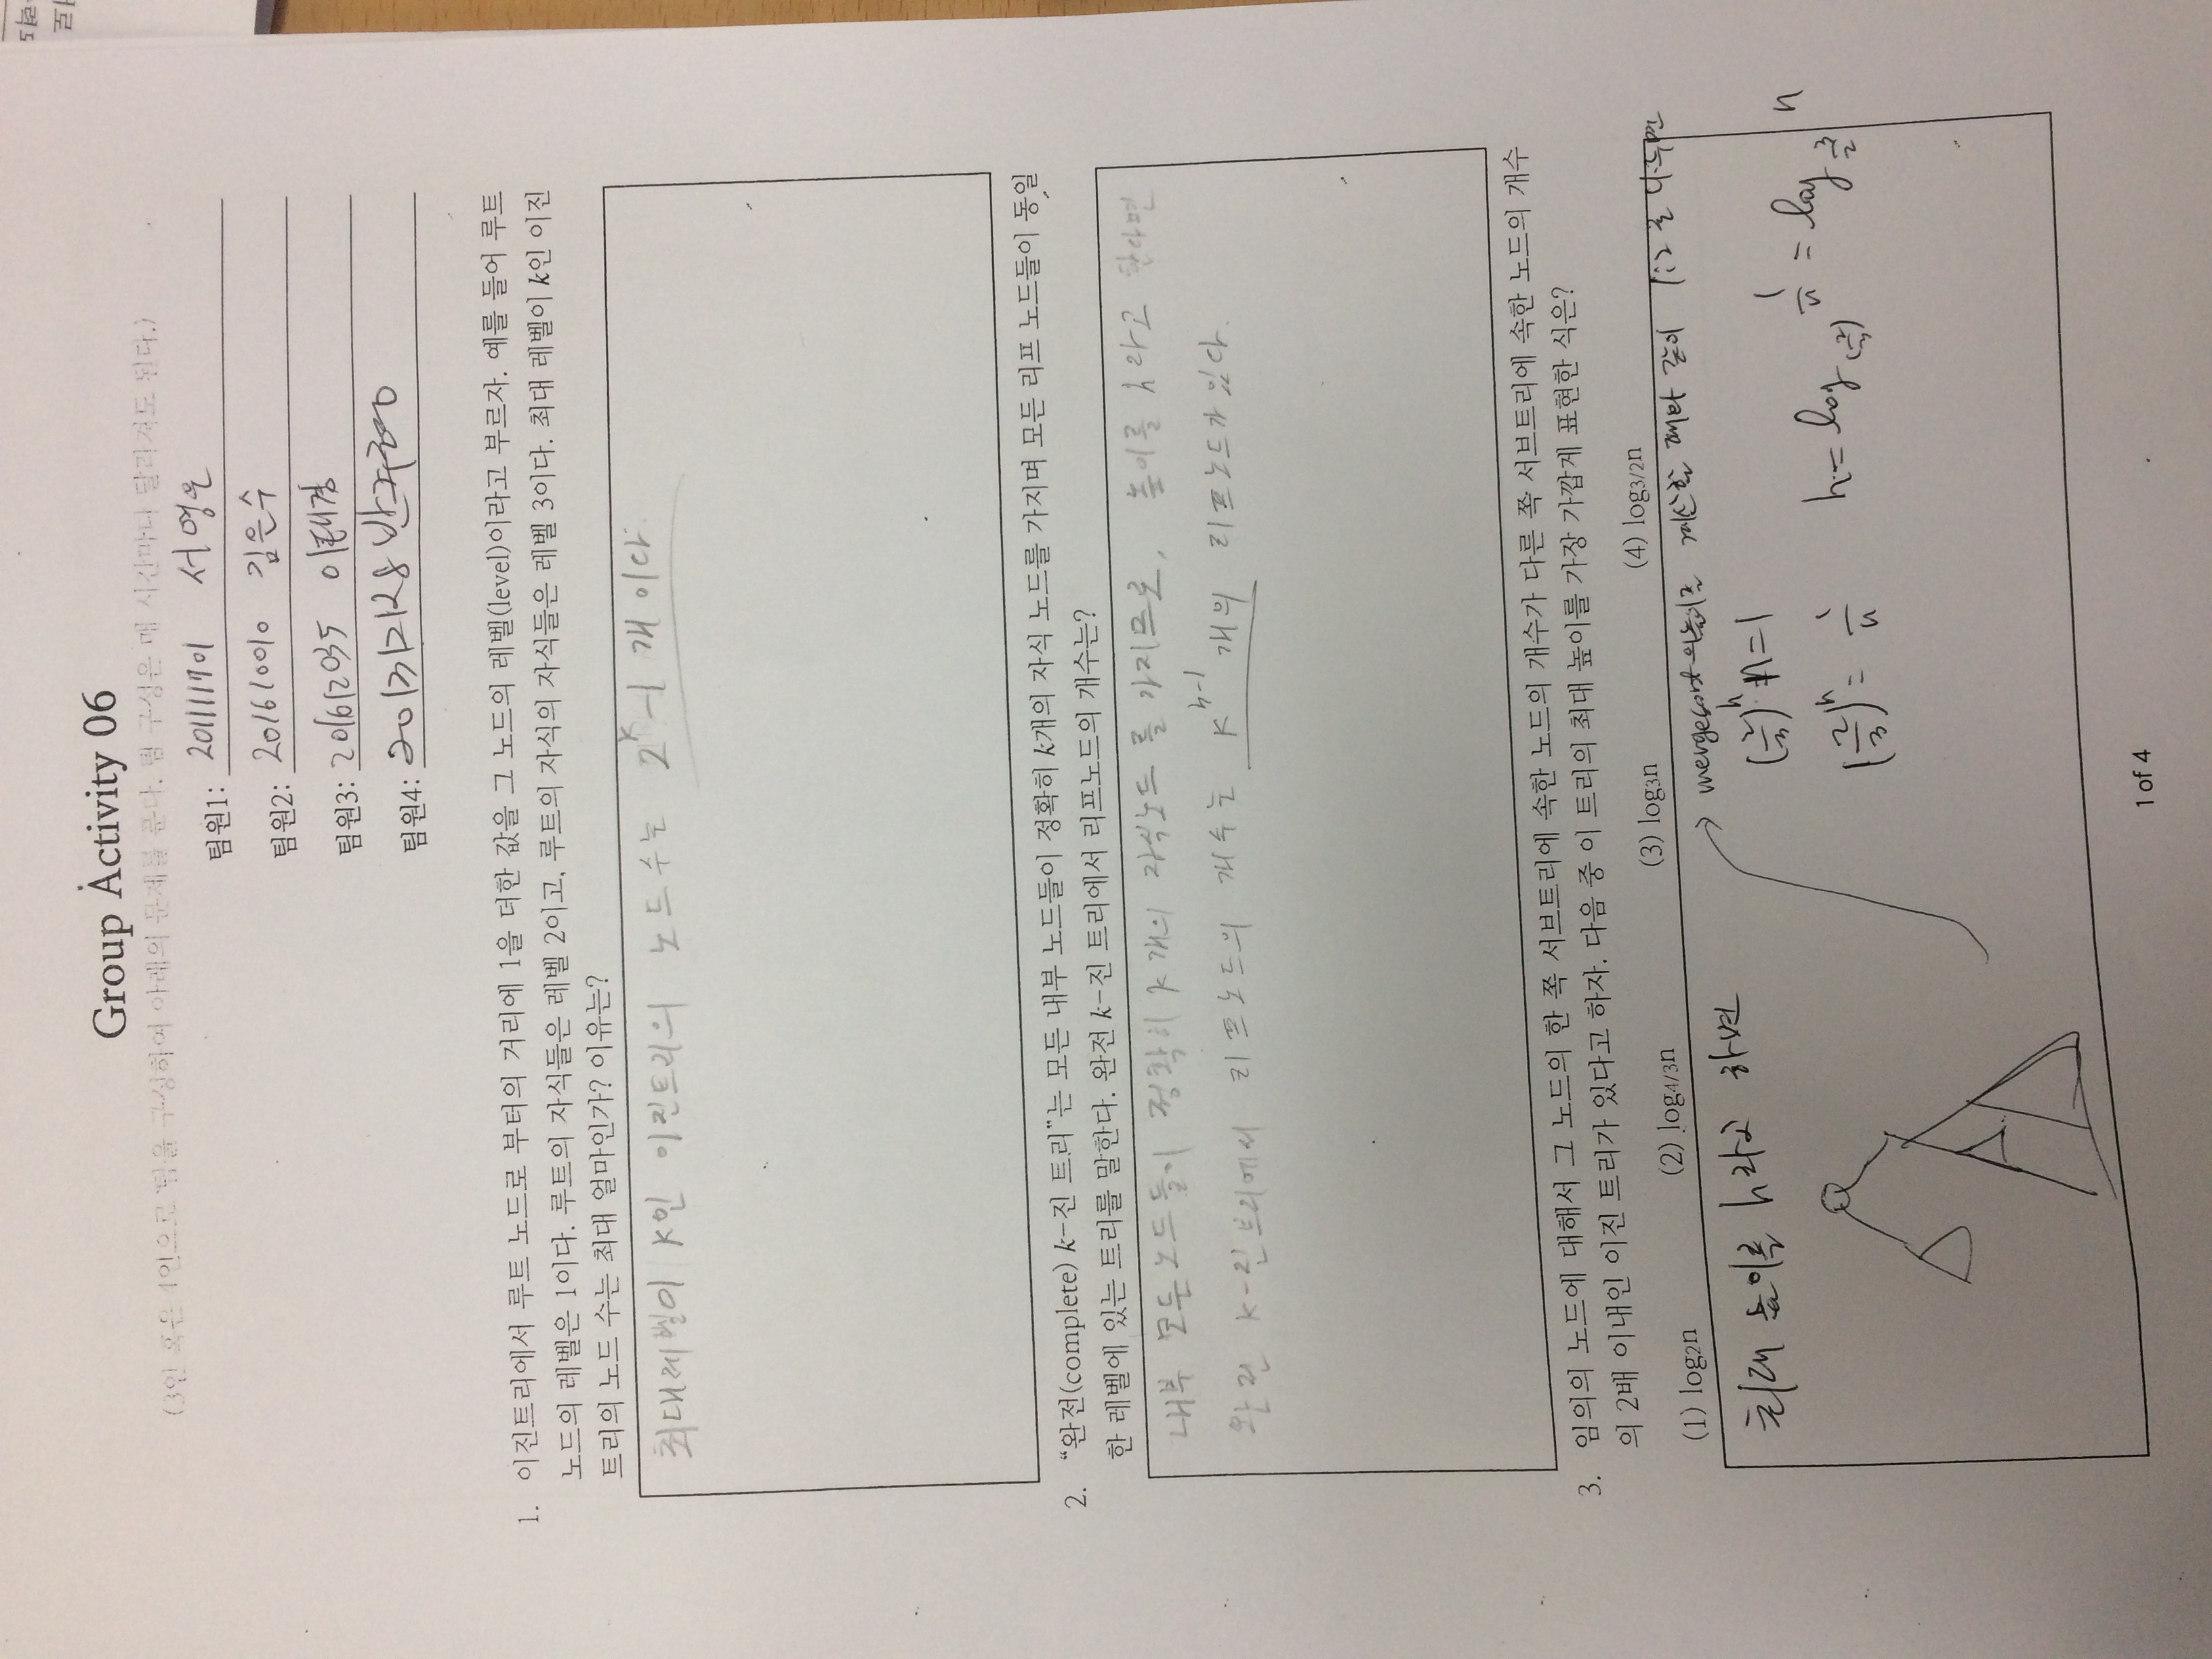 Group Activity 06
(3인 혹은 4인으로 팀을 구성하여 아래의 문제를 푼다. 팀 구성은 매 시간마다 달라져도 된다.)
팀원1: 201111701 서영운
팀원2: 201610010 김은수
팀원3: 201612035 이태경
팀원4: 201312128
1. 이진트리에서 루트 노드로 부터의 거리에 1을 더한 값을 그 노드의 레벨(level)이라고 부르자. 예를 들어 루트
노드의 레벨은 1이다. 루트의 자식들은 레벨 2이고, 루트의 자식의 자식들은 레벨 3이다. 최대 레벨이 k인 이진
트리의 노드 수는 최대 얼마인가? 이유는?
최대레벨이 K인 이진트리의 노드수는 2^k-1 개 이다.
2. “완전(complete) k-진 트리”는 모든 내부 노드들이 정확히 k개의 자식 노드를 가지며 모든 리프 노드들이 동일
한 레벨에 있는 트리를 말한다. 완전 k-진 트리에서 리프노드의 개수는?
내부 모든노드들이 정확히 K개의 자식노드를 가지므로, 높이를 h라고 한다면
완전 K-진트리에서 리프노드의 개수는 K^h-1 개의 리프노드가 있다.
3. 임의의 노드에 대해서 그 노드의 한 쪽 서브트리에 속한 노드의 개수가 다른 쪽 서브트리에 속한 노드의 개수
의 2배 이내인 이진 트리가 있다고 하자. 다음 중 이 트리의 최대 높이를 가장 가깝게 표현한 식은?
(1) log2n (2) log4/3n (3) log3n (4) log3/2n
→ mergesort의높이를 계산할 때와 같이 1:2로 나누면
최대 높이를 h라고 하면
(2/3)^h n=1
(2/3)^h = 1/n h = log(2/3) 1/n = log 3/2 n
1 of 4